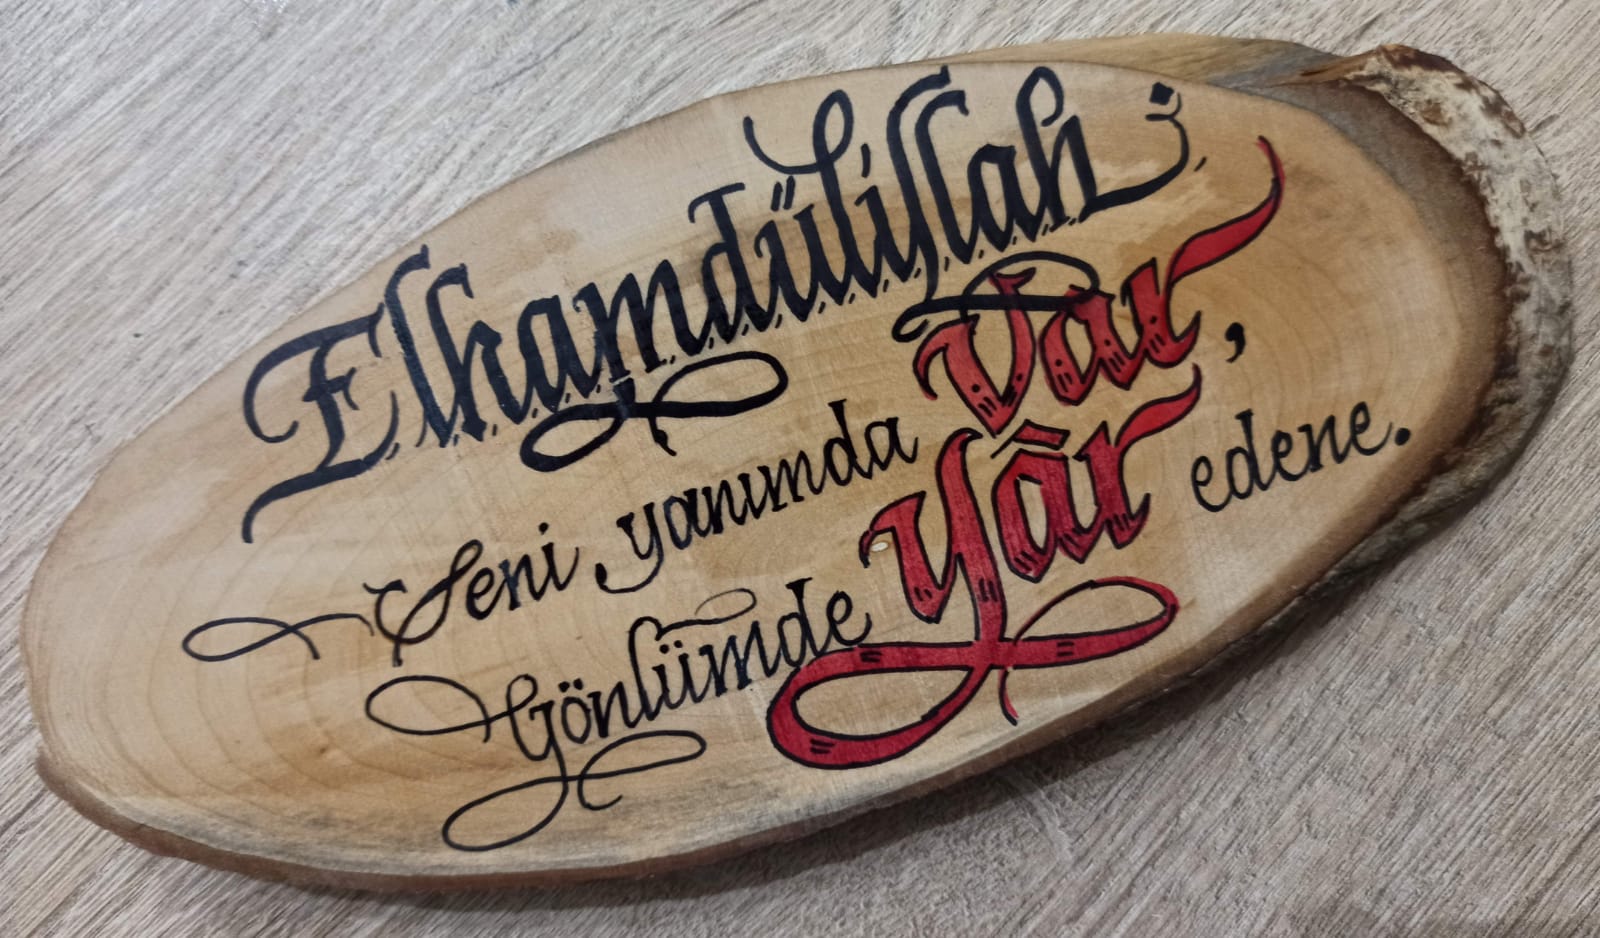 Elhamdülillah
Seni yanımda Var,
Gönlümde Yâr edene.